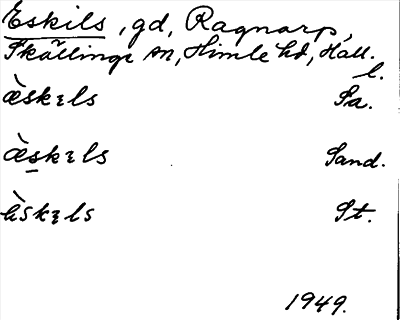 Eskils, gd, Ragnarp,
Skällinge sn, Himle hd, Hall.
l.
æ̀skɪls Sa.
æ̀s̠kɪls Sand.
St.
1949.